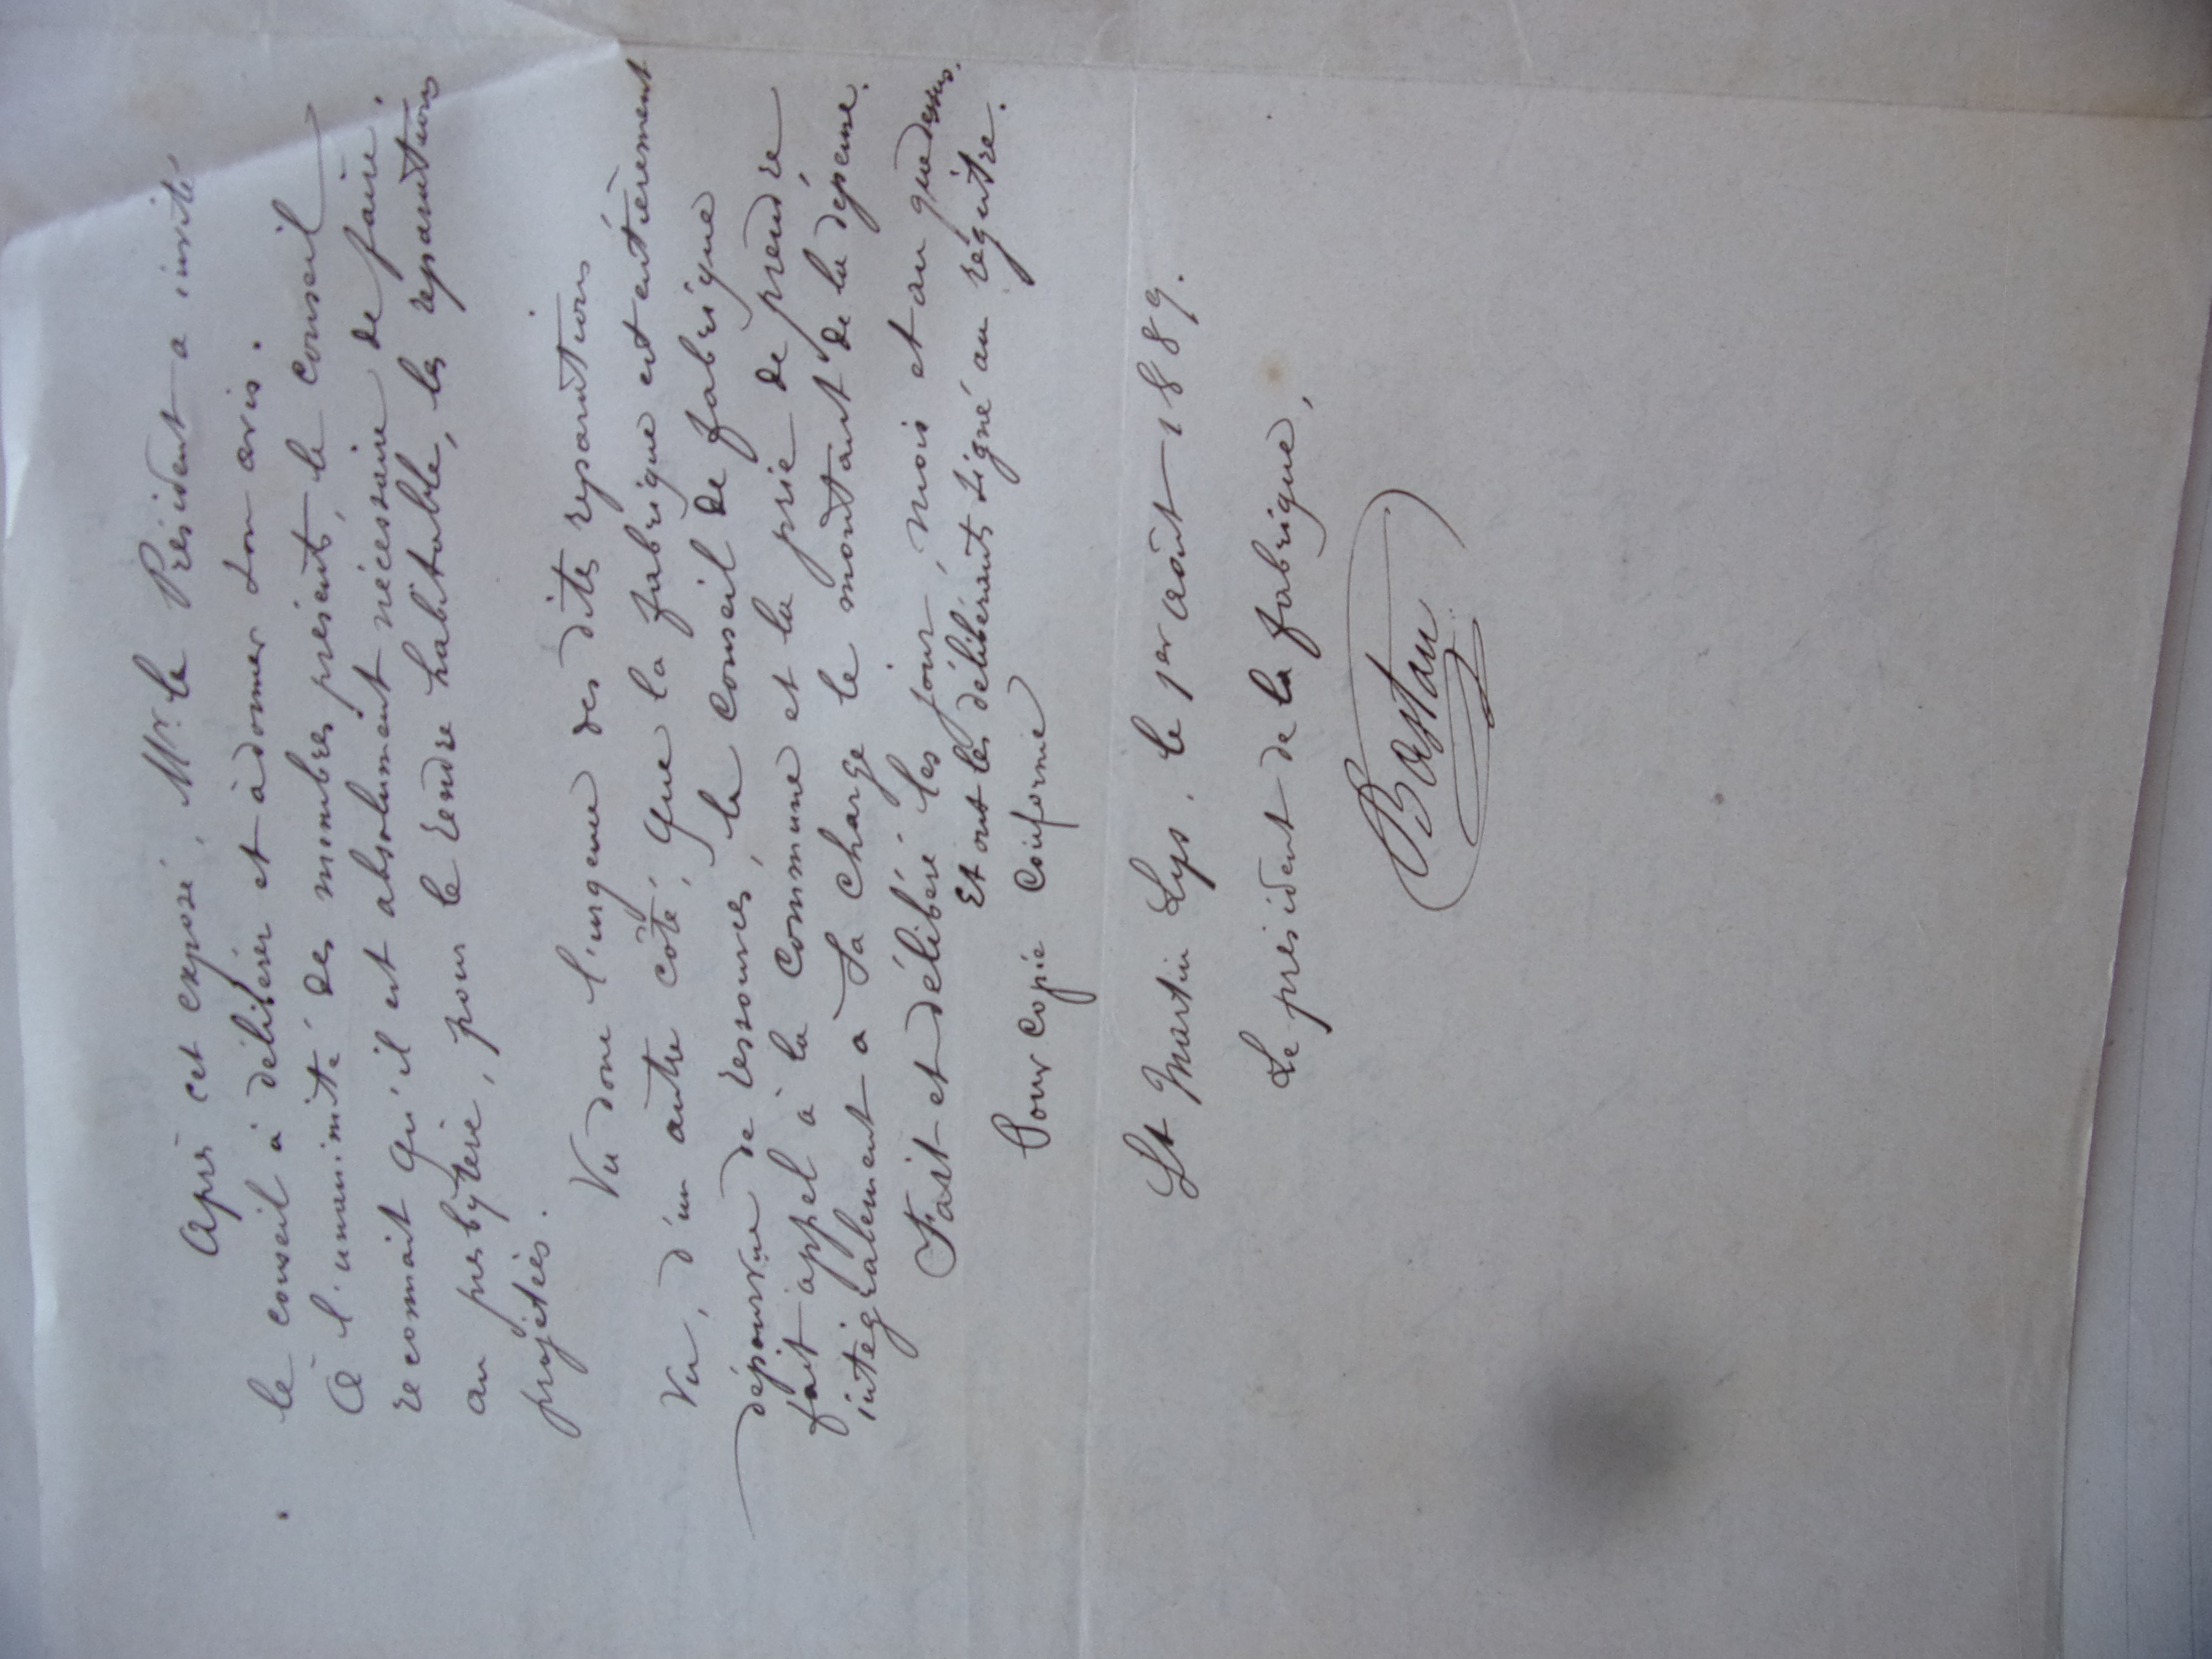 Après cet exposé, Mr. le Président a invité
le conseil à délibérer et à donner son avis.
A l'unanimité des membres présents, le conseil
reconnait qu'il est absolument nécessaire de faire,
au presbytère, pour le rendre habitable, les reparations
projetées.
Vu donc l'urgence des dites reparations,
Vu, d'un autre côté, que la fabrique est entièrement
dépourvue de ressources, le conseil de fabrique
fait appel à la commune et la prie de prendre
intégralement à sa charge le montant de la dépense.
Fait et délibéré les jour, mois et an que dessus.
Et ont les délibérants signé au régistre.
Pour copie conforme
St Martin Lys, le 1er août 1889.
Le président de la fabrique,
Bastau